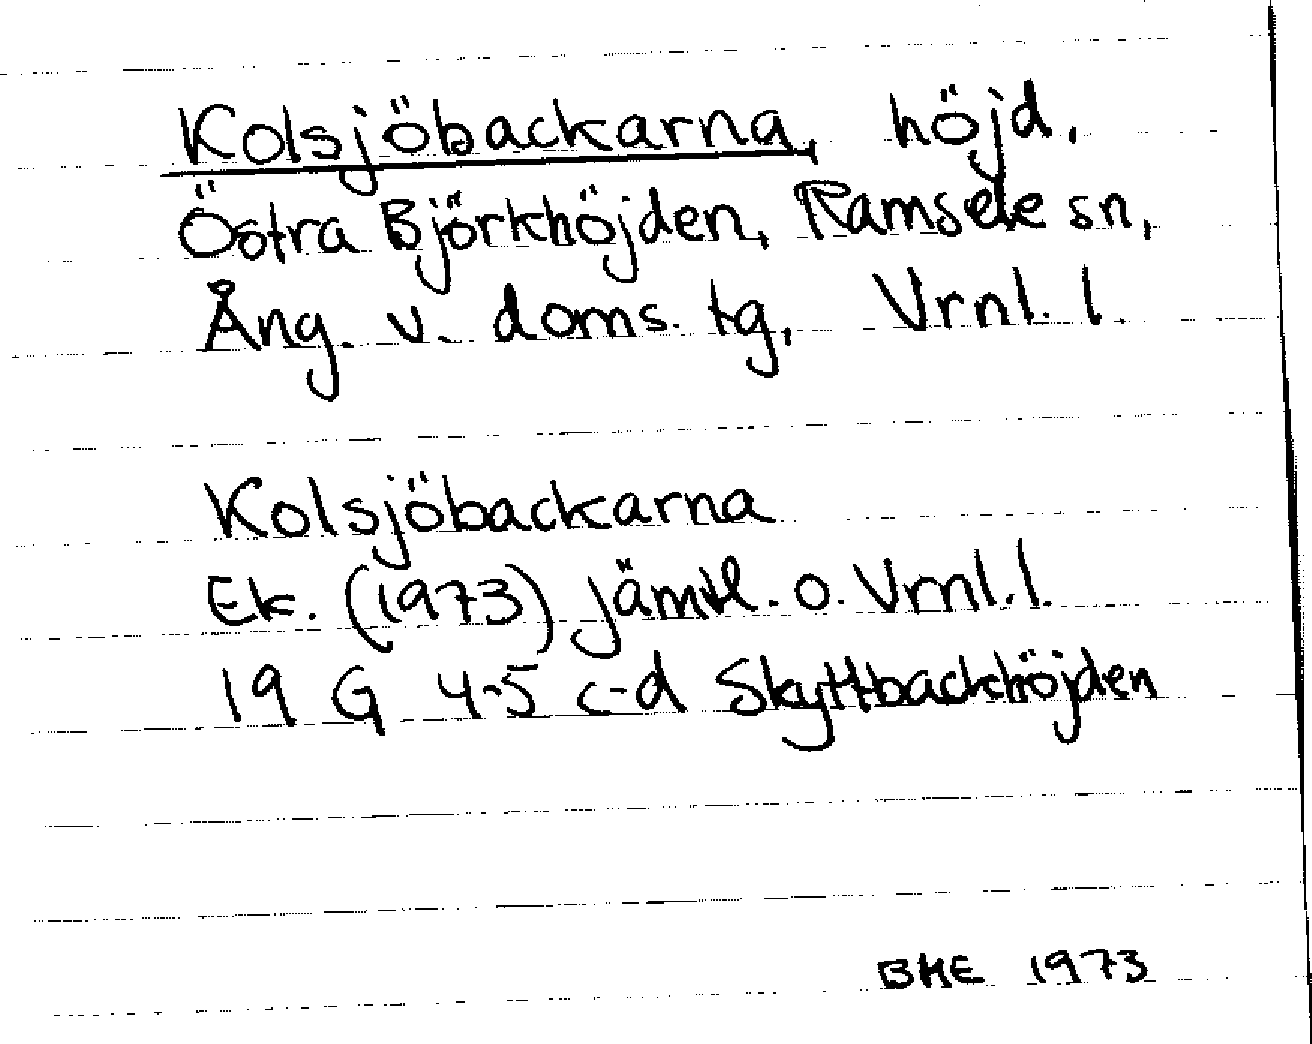 Kolsjöbackarna, höjd.
Östra Björkhöjden, Ramsele sn,
Ång. v. doms. tg, Vrnl. l.
Kolsjöbackarna
Ek. (1973) Jämtl. o. Vrnl. l.
19 G 4-5 c-d Skyttbackhöjden
BHE 1973